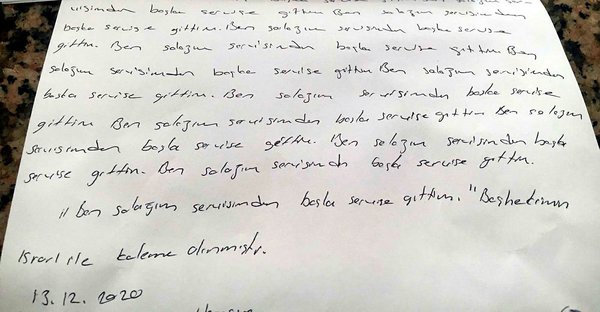 servisimden başka servise gittim Ben salağım servisimden
başka servise gittim. Ben salağım servisimden başka servise
gittim. Ben salağım servisimden başka servise gittim Ben
salağım servisimden başka servise gittim Ben salağım servisimden
başka servise gittim. Ben salağım servisimden başka servise
gittim Ben salağım servisimden başka servise gittim Ben salağım
servisimden başka servise gittim. Ben salağım servisimden başka
servise gittim. Ben salağım servisimden başka servise gittim.
ben salağım servisimden başka servise gittim. "Başhekimin
Israrı ile kaleme alınmıştır.
13.12.2020